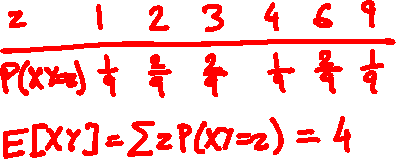 z 1 2 3 4 6 9
P(XY=z) 1/9 2/9 2/9 1/9 2/9 1/9
E[XY] = Σ z P(XY=z) = 4